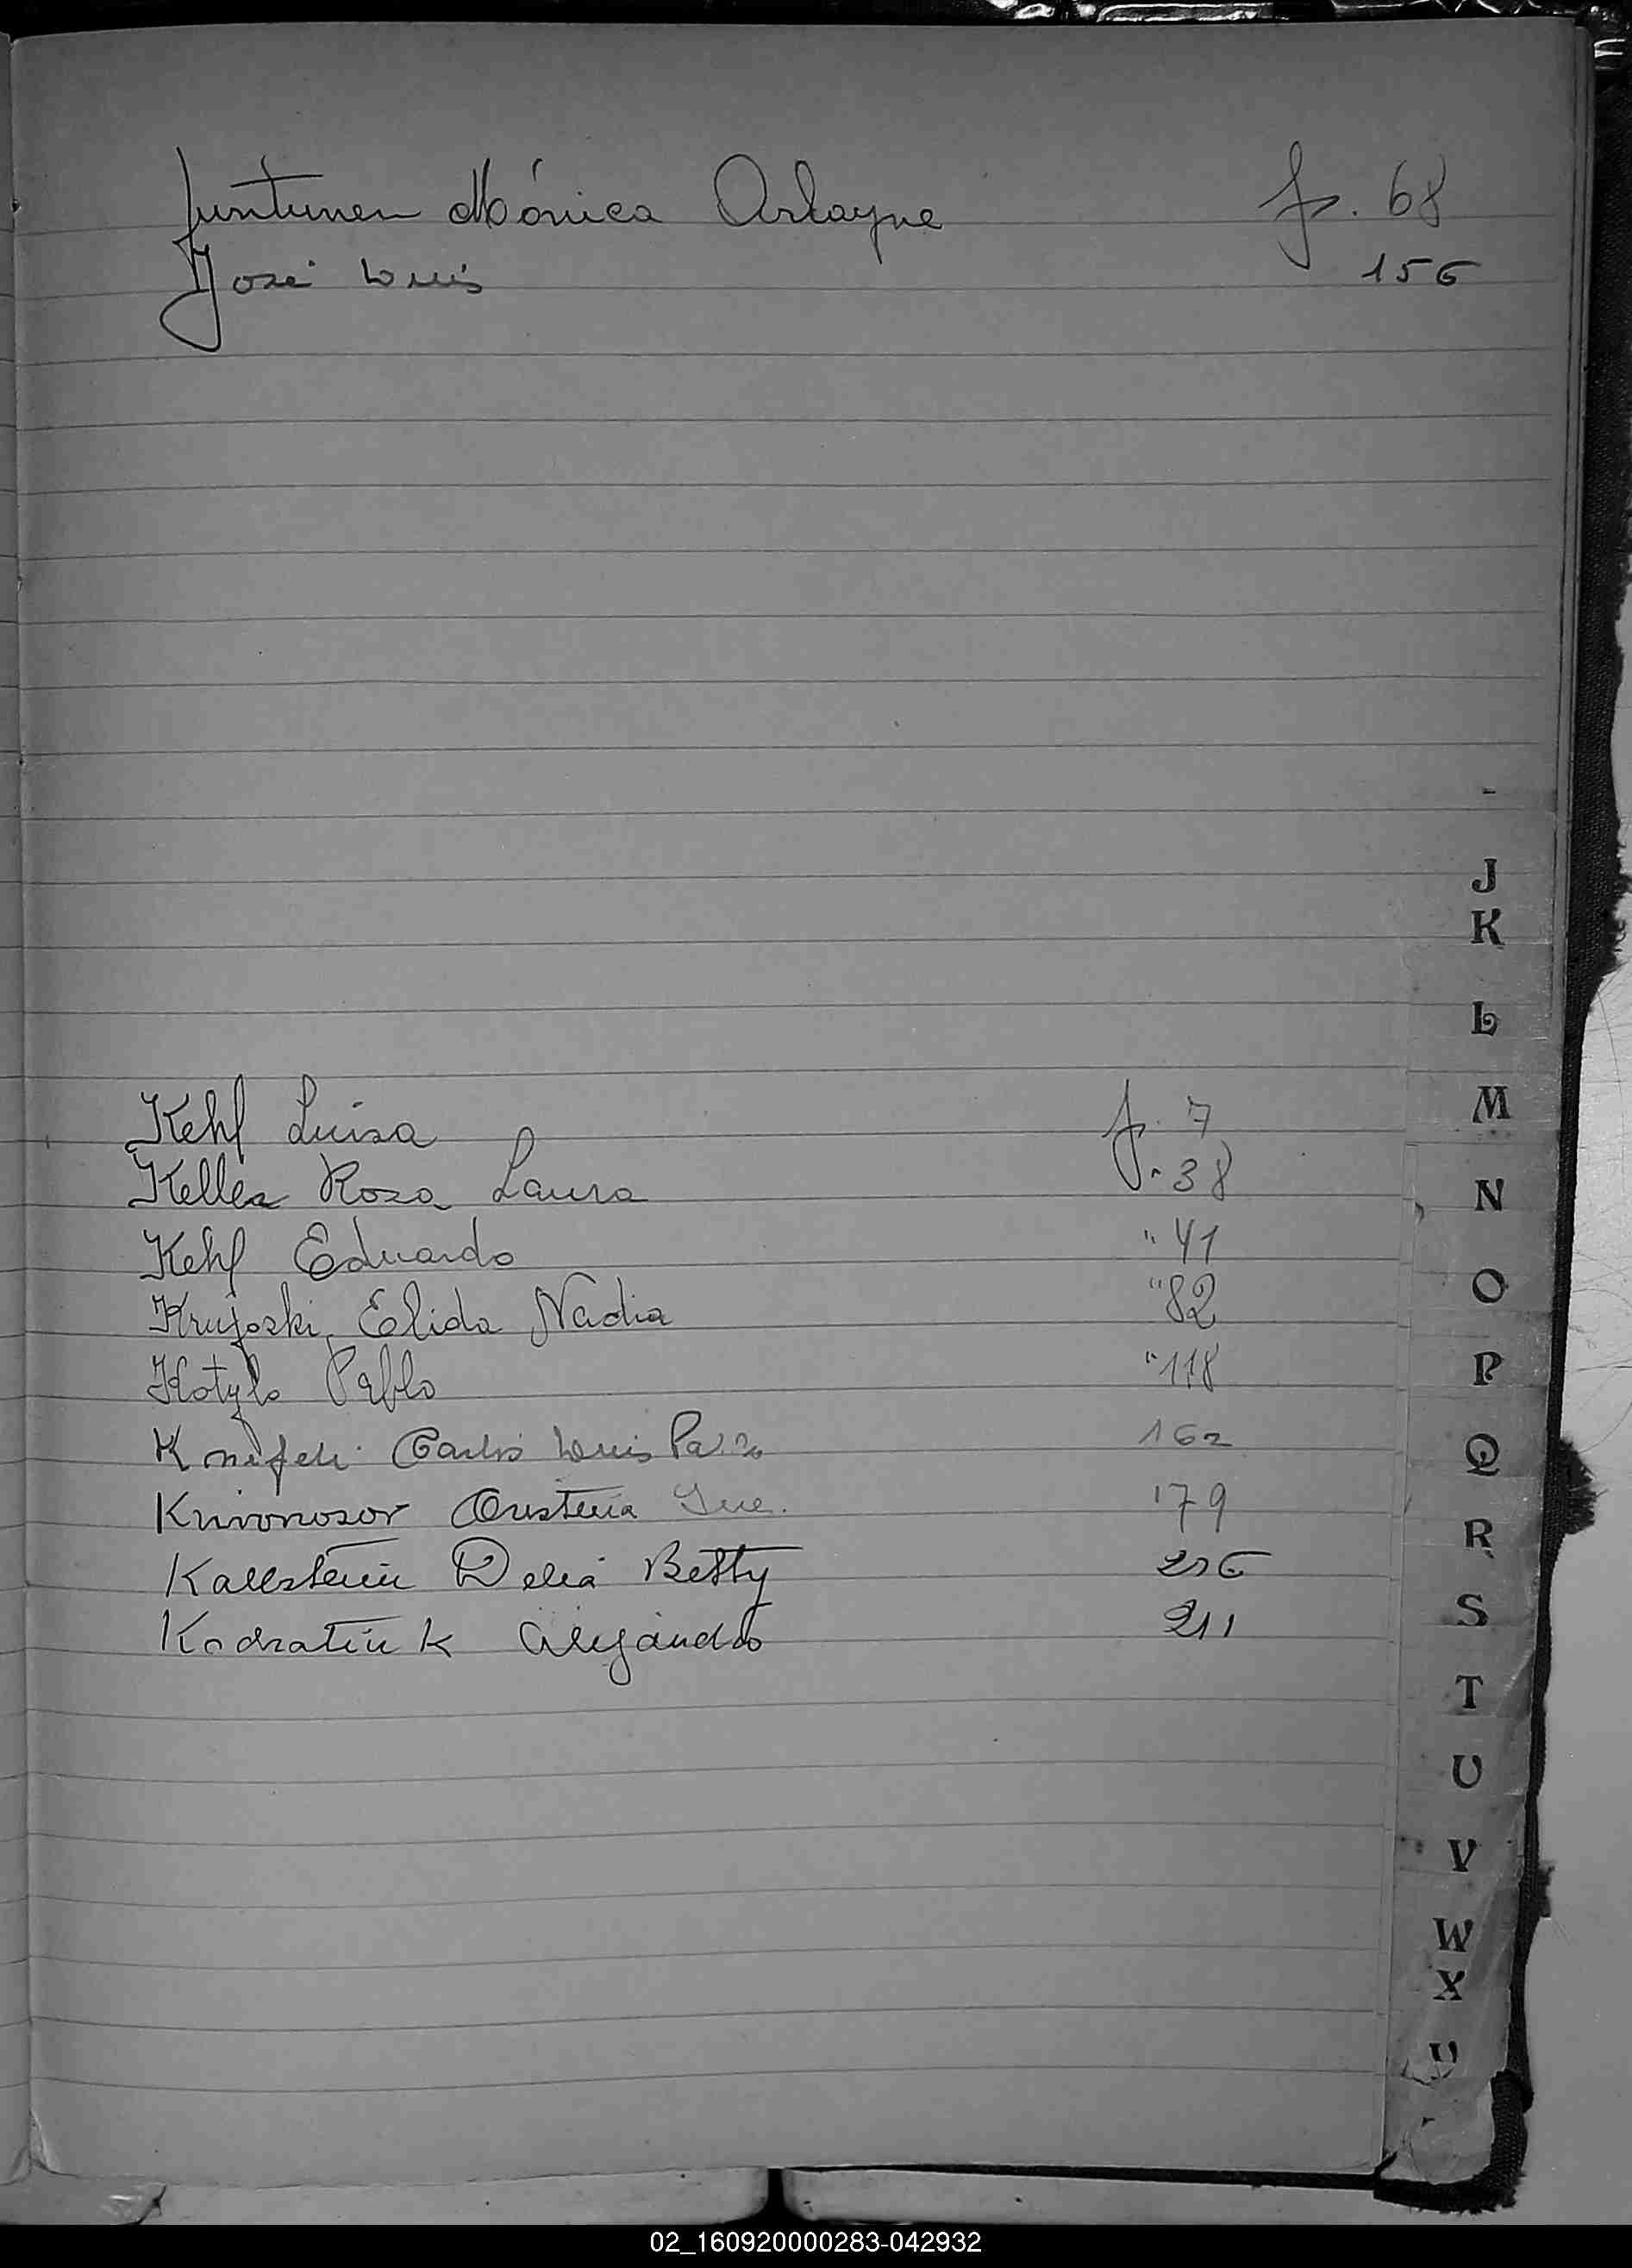 Juntunen Mónica Arlayne fs. 68
José Luis 156
J
K
L
Kehl Luisa fs. 7
M
Keller Rosa Laura " 38
N
Kehl Eduardo " 41
Krujoski, Elida Nadia " 82
O
Kotylo Pablo " 118
P
Carlos Luis 162
Q
Krivonosov Cristina 179
R
Kallstein Delia Betty
S
Kodratiuk Alejandro 211
T
U
V
W
X
02_160920000283-042932